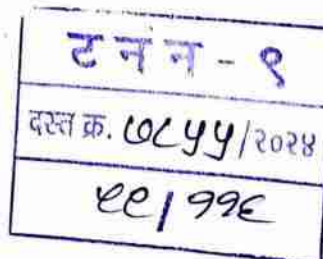 ट न न - ९
दस्त क्र. ७८५५/२०२४
९९/११६